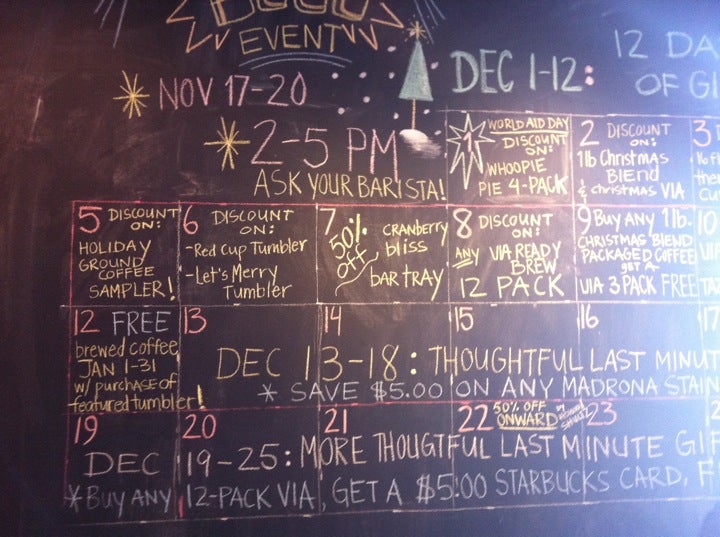 EVENT
NOV 17-20
2-5 PM
ASK YOUR BARISTA!
DEC 1-12:
12 DA
OF GI
1 WORLD AID DAY
DISCOUNT
ON:
WHOOPIE
PIE 4-PACK
2 DISCOUNT
ON:
1lb Christmas
Blend
& christmas VIA
3
5 DISCOUNT
ON:
HOLIDAY
GROUND
COFFEE
SAMPLER!
6 DISCOUNT
ON:
-Red Cup Tumbler
-Let's Merry
Tumbler
7
50%
OFF
CRANBERRY
bliss
bar TRAY
8 DISCOUNT
ON:
ANY VIA READY
BREW
12 PACK
9 BUY ANY 1lb.
CHRISTMAS BLEND
PACKAGED COFFEE
GET A
VIA 3 PACK FREE
10
VIA
12 FREE
brewed coffee
JAN 1-31
w/ purchase of
featured tumbler!
13
14
15
16
17
DEC 13-18: THOUGHTFUL LAST MINUT
* SAVE $5.00 ON ANY MADRONA STAIN
19
20
21
22 50% OFF
ONWARD
23
DEC 19-25: MORE THOUGTFUL LAST MINUTE GI
* BUY ANY 12-PACK VIA, GET A $5.00 STARBUCKS CARD, F